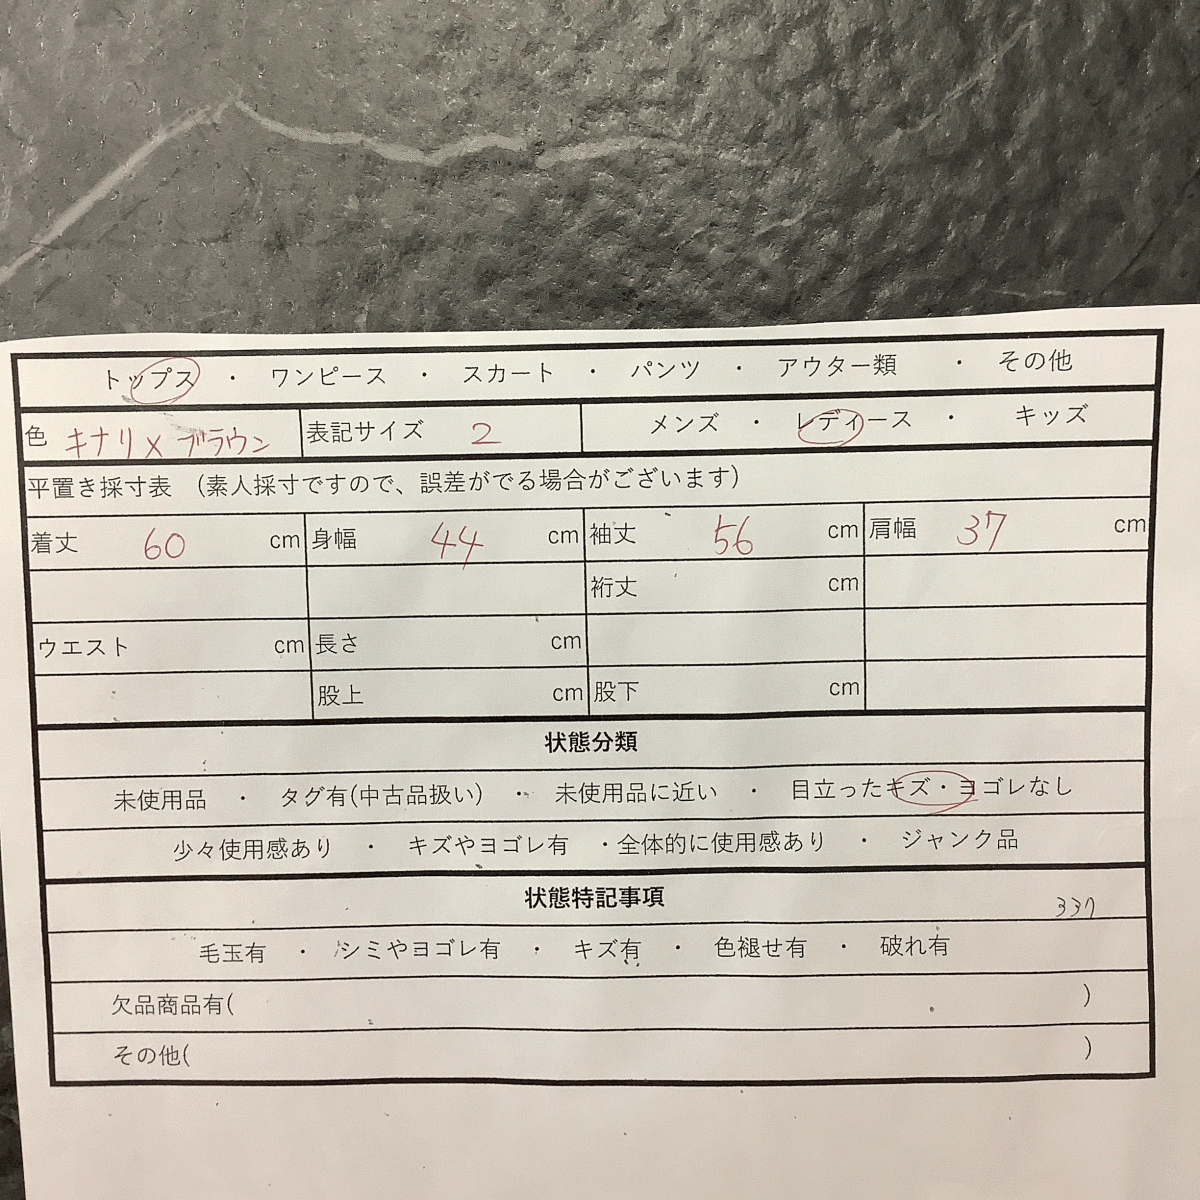 トップス ・ ワンピース ・ スカート ・ パンツ ・ アウター類 ・ その他
色 キナリ×ブラウン 表記サイズ 2 メンズ ・ レディース ・ キッズ
平置き採寸表 (素人採寸ですので、誤差がでる場合がございます)
着丈 60 cm 身幅 44 cm 袖丈 56 cm 肩幅 37 cm
裄丈 cm
ウエスト cm 長さ cm
股上 cm 股下 cm
状態分類
未使用品 ・ タグ有(中古品扱い) ・ 未使用品に近い ・ 目立ったキズ・ヨゴレなし
少々使用感あり ・ キズやヨゴレ有 ・全体的に使用感あり ・ ジャンク品
状態特記事項 337
毛玉有 ・ シミやヨゴレ有 ・ キズ有 ・ 色褪せ有 ・ 破れ有
欠品商品有( )
その他( )